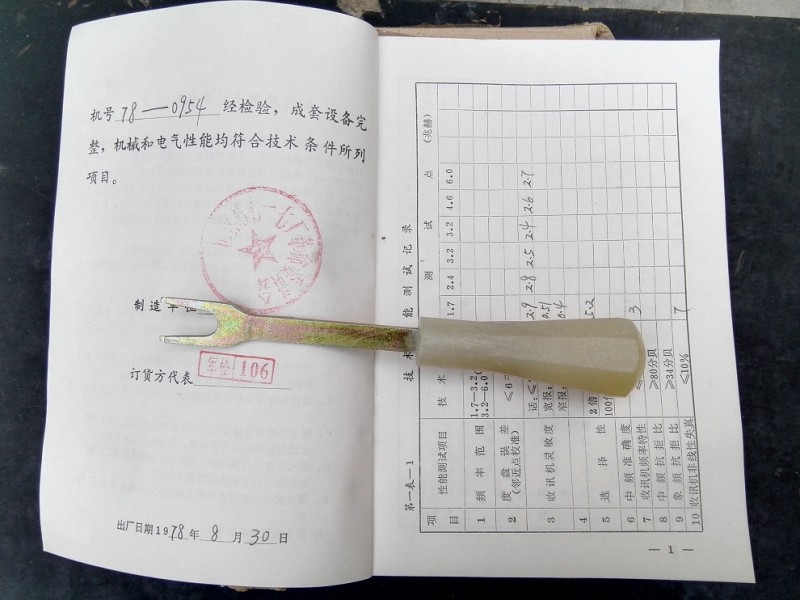 机号 78—0954 经检验，成套设备完
整，机械和电气性能均符合技术条件所列
项目。
制造
订货方代表
军检 106
出厂日期1978年8月30日
第一表—1 技术 能测试记录
项目 性能测试项目 技术 测试点（兆赫）
1.7 2.4 3.2 3.2 4.6 6.0
1 频率范围 1.7—3.2 3.2—6.0
2 度盘误差（邻近点校准） ≤6
3 收讯机灵敏度 话：≤ 2.9 2.8 2.5 2.4 2.6 2.7
宽报： 0.51
窄报： 0.4
4
5 选择性 2倍 5.2
100倍
6 中频准确度
7 收讯机频率特性 3
8 中频抗拒比 ≥80分贝
9 象频抗拒比 ≥34分贝
10 收讯机非线性失真 ≤10% 7
— 1 —